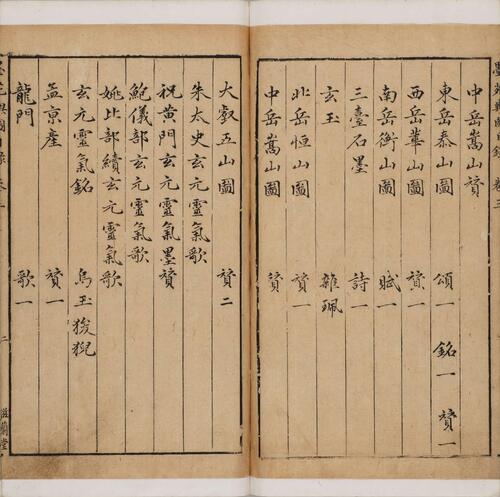 中岳嵩山贊
東岳泰山圖 頌一 銘一 贊一
西岳華山圖 贊一
南岳衡山圖 賦一
三臺石墨 詩一
玄玉 雜珮
北岳恒山圖 贊一
中岳嵩山圖 贊
大叡五山圖 贊二
朱太史玄元靈氣歌
祝黃門玄元靈氣墨贊
鮑儀部玄元靈氣歌
姚比部續玄元靈氣歌
玄元靈氣銘 烏玉狻猊
孟京產 贊一
龍門 歌一
二
滋蘭堂